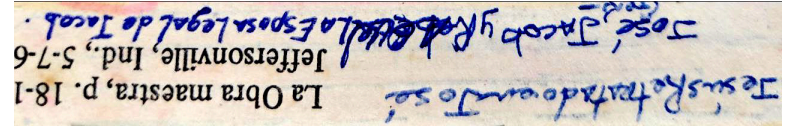 Jesús Retratado en José La Obra maestra, p. 18-1
Jeffersonville, Ind., 5-7-6
José, Jacob y Raquel La Esposa Legal de Jacob.